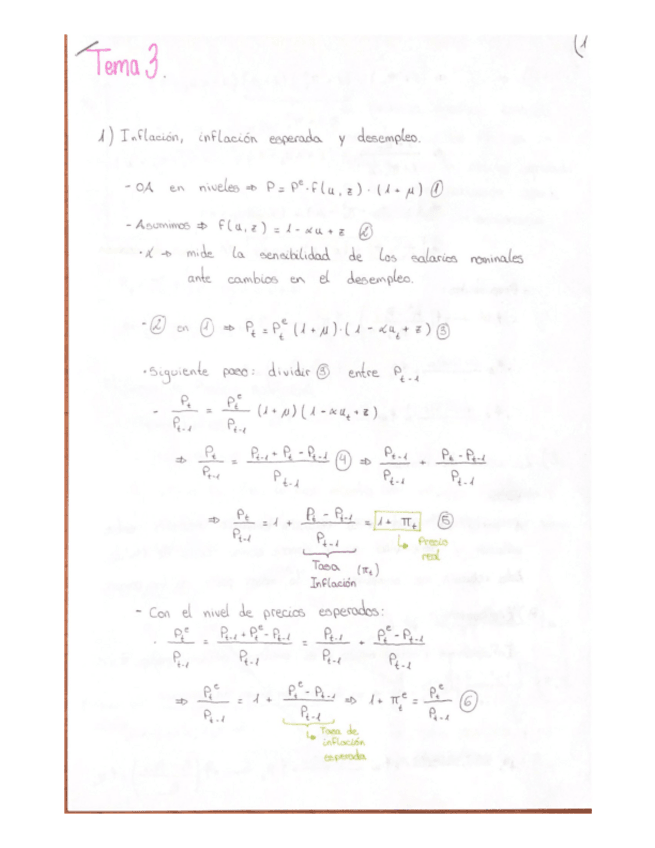 (1
Tema 3.
1) Inflación, inflación esperada y desempleo.
- OA en niveles ⇒ P = Pᵉ · F(u, z) · (1 + μ) ①
- Asumimos ⇒ F(u, z) = 1 - αu + z ②
· α → mide la sensibilidad de los salarios nominales
ante cambios en el desempleo.
- ② en ① ⇒ Pₜ = Pₜᵉ (1 + μ) · (1 - αuₜ + z) ③
· Siguiente paso: dividir ③ entre Pₜ₋₁
- Pₜ / Pₜ₋₁ = Pₜᵉ / Pₜ₋₁ (1 + μ) (1 - αuₜ + z)
⇒ Pₜ / Pₜ₋₁ = Pₜ₋₁ + Pₜ - Pₜ₋₁ / Pₜ₋₁ ④ ⇒ Pₜ₋₁ / Pₜ₋₁ + Pₜ - Pₜ₋₁ / Pₜ₋₁
⇒ Pₜ / Pₜ₋₁ = 1 + Pₜ - Pₜ₋₁ / Pₜ₋₁ = 1 + πₜ ⑤
Precio
real
Tasa (πₜ)
Inflación
- Con el nivel de precios esperados:
· Pₜᵉ / Pₜ₋₁ = Pₜ₋₁ + Pₜᵉ - Pₜ₋₁ / Pₜ₋₁ = Pₜ₋₁ / Pₜ₋₁ + Pₜᵉ - Pₜ₋₁ / Pₜ₋₁
⇒ Pₜᵉ / Pₜ₋₁ = 1 + Pₜᵉ - Pₜ₋₁ / Pₜ₋₁ ⇒ 1 + πₜᵉ = Pₜᵉ / Pₜ₋₁ ⑥
Tasa de
inflación
esperada